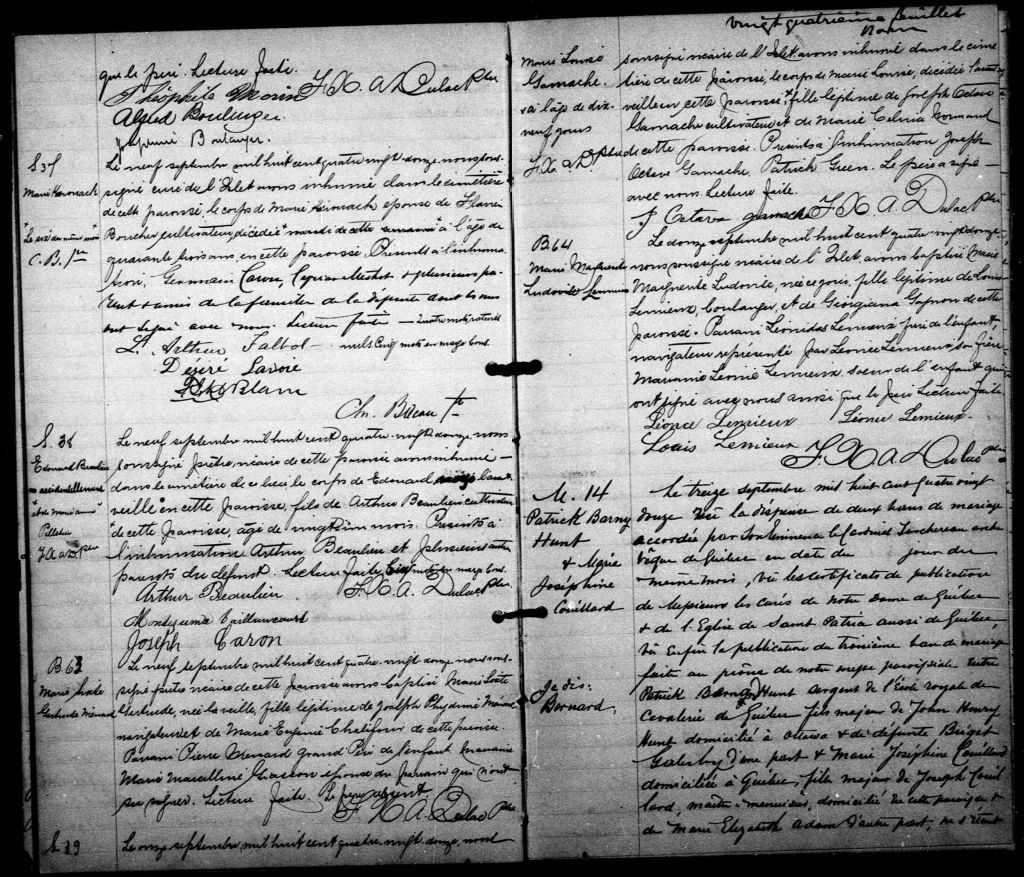 que le père. Lecture faite.
Théophile Morin F. X. A. Dulac Ptre
Alfred Boulanger.
Boulanger
S 37
Marie Kermach
"le six du même mois"
C. B. Ptre
Le neuf septembre mil huit cent quatre vingt douze, nous sous-
signé curé de l'Islet avons inhumé dans le cimetière
de cette paroisse, le corps de Marie Kermach épouse de
Boucher, cultivateur, décédée mardi de cette semaine à l'âge de
quarante trois ans, en cette paroisse. Présents à l'inhuma
tion, Germain Caron, Cyprien & plusieurs pa
rents & amis de la famille de la défunte dont les uns
ont signé avec nous. Lecture faite — quatre mots raturés
L. Arthur Talbot — nuls. Cinq mots en marge bons.
Désiré Lavoie
Ch. Ptre
S. 38
Edouard Beaulieu
accidentellement
"et de Marianne"
Pelletier
F.X.A.D. Ptre
Le neuf septembre mil huit cent quatre-vingt douze nous
soussigné prêtre, vicaire de cette paroisse avons inhumé —
dans le cimetière de ce lieu le corps de Edouard la
veille en cette paroisse, fils de Arthur Beaulieu cultivateur
de cette paroisse, âgé de vingt mois. Présents à
l'inhumation Arthur Beaulieu et plusieurs autres
parents du défunt. Lecture faite. mots en marge bons
Arthur Beaulieu F. X. A. Dulac Ptre
Montezuma Vaillancourt
Joseph Caron
B 63
Marie
Gertrude Ménard
Le neuf septembre mil huit cent quatre-vingt douze nous sous-
signé prêtre vicaire de cette paroisse avons baptisé Marie
Gertrude, née la veille, fille légitime de Joseph Phydime Ménard
navigateur et de Marie Eugénie Chalifour de cette paroisse
Parrain Pierre Menard grand Père de l'enfant Marraine
Marie Marcelline épouse du parrain qui n'ont
su signer. Lecture faite. Le père absent.
F. X. A. Dulac Ptre
S 39
Le onze septembre mil huit cent quatre vingt-douze, nous
vingt quatrième feuillet
Marie Louise
Gamache
à l'âge de dix
neuf jours
F. X. A. D. Ptre
soussigné vicaire de l'Islet avons inhumé dans le cime
tière de cette paroisse, le corps de Marie Louise, décédée l'avant
veille en cette paroisse, fille légitime de Joseph Octave
Gamache cultivateur et de Marie Celina Normand
de cette paroisse. Présents à l'inhumation Joseph
Octave Gamache, Patrick Guen. Le père a signé —
avec nous. Lecture faite.
J Octave Gamache F. X. A. Dulac Ptre
B 64
Marie Marguerite
Ludovite Lemieux
Le douze septembre mil huit cent quatre-vingt douze
nous soussigné vicaire de l'Islet, avons baptisé Marie
Marguerite Ludovite, née ce jour, fille légitime de Louis
Lemieux, boulanger, et de Georgiana Gagnon de cette
paroisse. Parrain Léonidas Lemieux frère de l'enfant,
navigateur représenté par Léonce Lemieux, son frère
Marraine Léonie Lemieux, soeur de l'enfant qui
ont signé avec nous ainsi que le père Lecture faite.
Léonce Lemieux Léonie Lemieux.
Louis Lemieux
F. X. A. Dulac Ptre
M. 14
Patrick Barny
Hunt
& Marie
Joséphine
Couillard
Je dis:
Bernard.
Le treize septembre mil huit cent quatre vingt
douze vu la dispense de deux bans de mariage
accordée par Son Eminence le Cardinal Taschereau arche
vêque de Québec en date du jour du
même mois, vu les certificats de publication
de Messieurs les Curés de Notre Dame de Québec
& de l'Eglise de Saint Patrice aussi de Québec,
vu enfin la publication du troisième ban de mariage
faite au prône de notre messe paroissiale entre
Patrick Hunt sergent de l'école royale de
cavalerie de Québec fils majeur de John Henry
Hunt domicilié à Ottawa & de défunte Briget
d'une part & Marie Joséphine Couillard
domiciliée à Québec, fille majeure de Joseph Couil
lard, maître-menuisier, domicilié de cette paroisse &
de Marie Elizabeth Adam d'autre part, ne s'étant